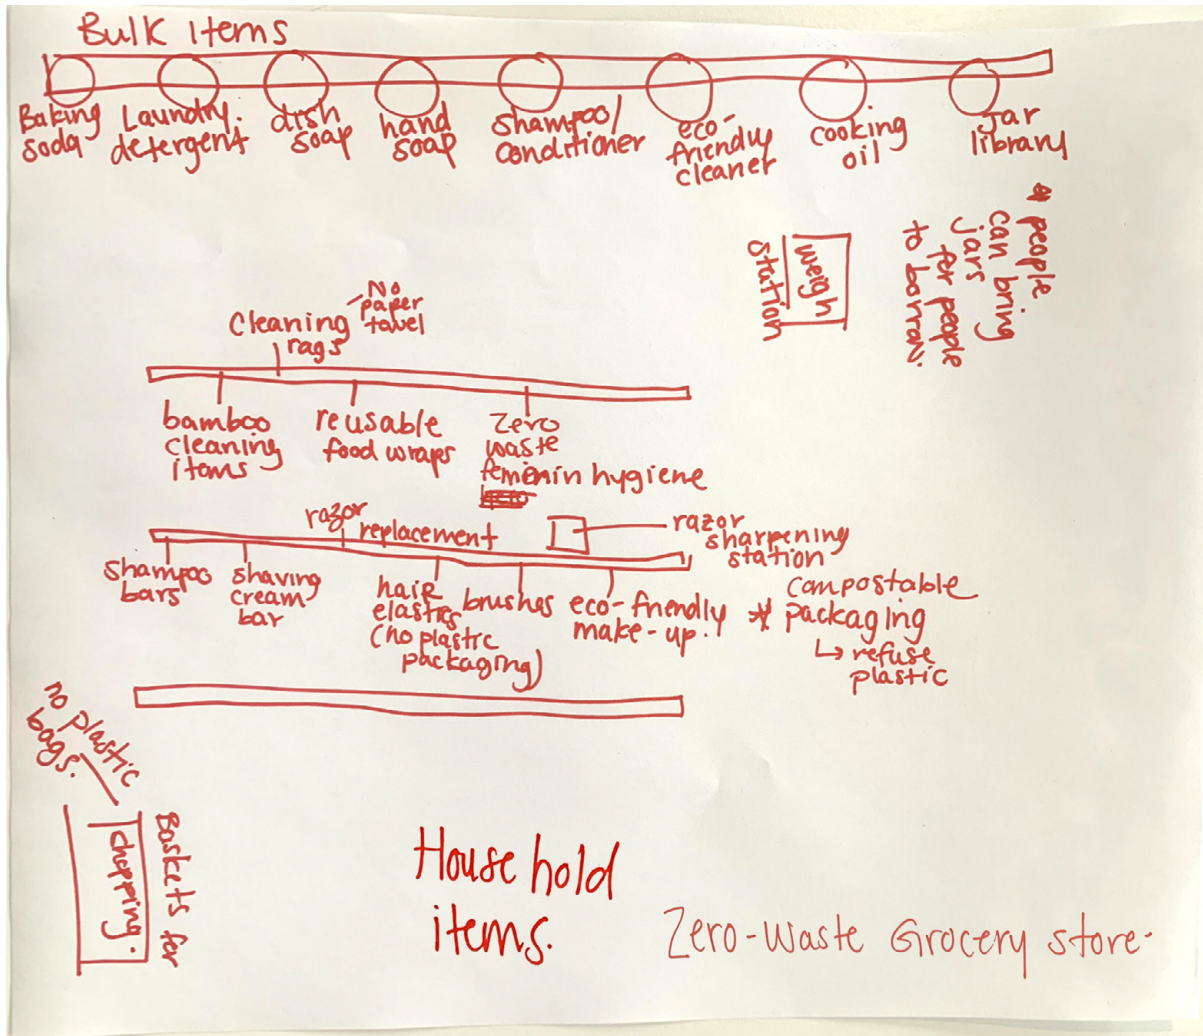 Bulk Items
Baking
soda
Laundry
detergent
dish
soap
hand
soap
shampoo/
conditioner
eco-
friendly
cleaner
cooking
oil
Jar
library
* people
can bring
jars
for people
to borrow.
weigh
station
Cleaning
rags
No
paper
towel
bamboo
cleaning
items
reusable
food wraps
Zero
waste
feminin hygiene
razor
replacement
razor
sharpening
station
shampoo
bars
shaving
cream
bar
hair
elastics
(no plastic
packaging)
brushes
eco-friendly
make-up.
* compostable
packaging
↳ refuse
plastic
no plastic
bags.
Baskets for
shopping.
House hold
items.
Zero-Waste Grocery store.